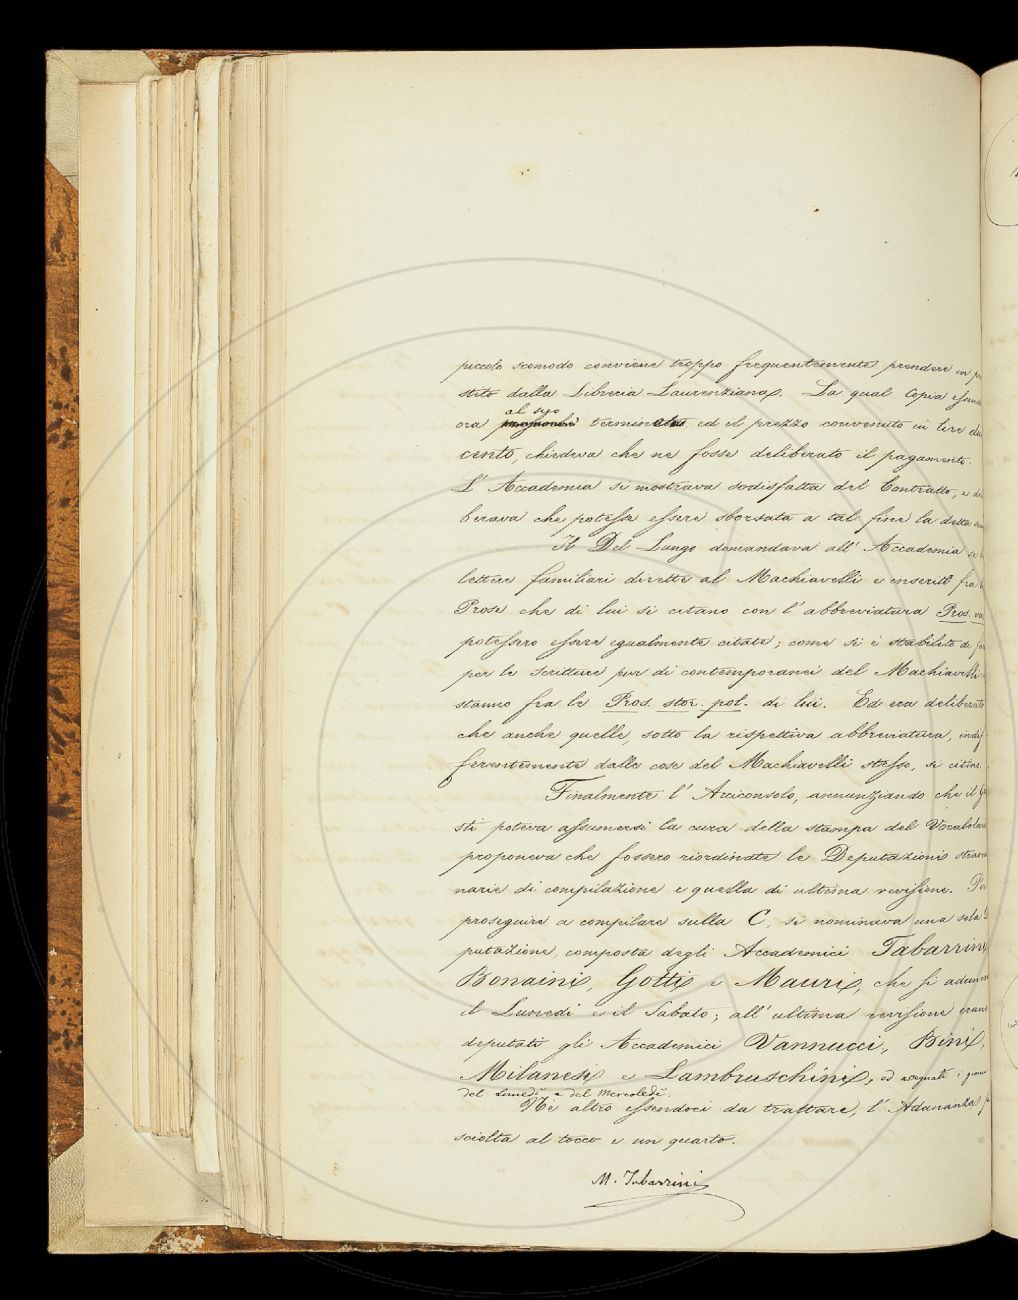 piccolo scomodo conviene troppo frequentemente prendere in pre
stito dalla Libreria Laurenziana. La qual Copia essendo
al suo
ora terminata ed il prezzo convenuto in lire du
cento, chiedeva che ne fosse deliberato il pagamento.
L' Accademia si mostrava sodisfatta del Contratto, e
berava che potesse essere sborsata a tal fine la detta
Il Del Lungo domandava all' Accademia se
lettere familiari dirette al Machiavelli e inserite fra
Prose che di lui si citano con l' abbreviatura Pros. va
potessero essere egualmente citate; come si è stabilito di
per le scritture pur di contemporanei del Machiavelli
stanno fra le Pros. stor. pol. di lui. Ed era deliberato
che anche quelle, sotto la rispettiva abbreviatura, indif
ferentemente dalle cose del Machiavelli stesso, si citino.
Finalmente l' Arciconsolo, annunziando che il
sti poteva assumersi la cura della stampa del Vocabolario
proponeva che fossero riordinate le Deputazioni straor
narie di compilazione e quella di ultima revisione. Per
proseguire a compilare sulla C, si nominava una sola
putazione, composta degli Accademici Tabarrini,
Bonaini, Gotti e Mauri, che si
il Lunedì e il Sabato; all' ultima revisione erano
deputati gli Accademici Vannucci, Bini,
Milanesi e Lambruschini, ed assegnati i giorni
del Lunedì e del Mercoledì.
Nè altro essendoci da trattare, l' Adunanza
sciolta al tocco e un quarto.
M. Tabarrini